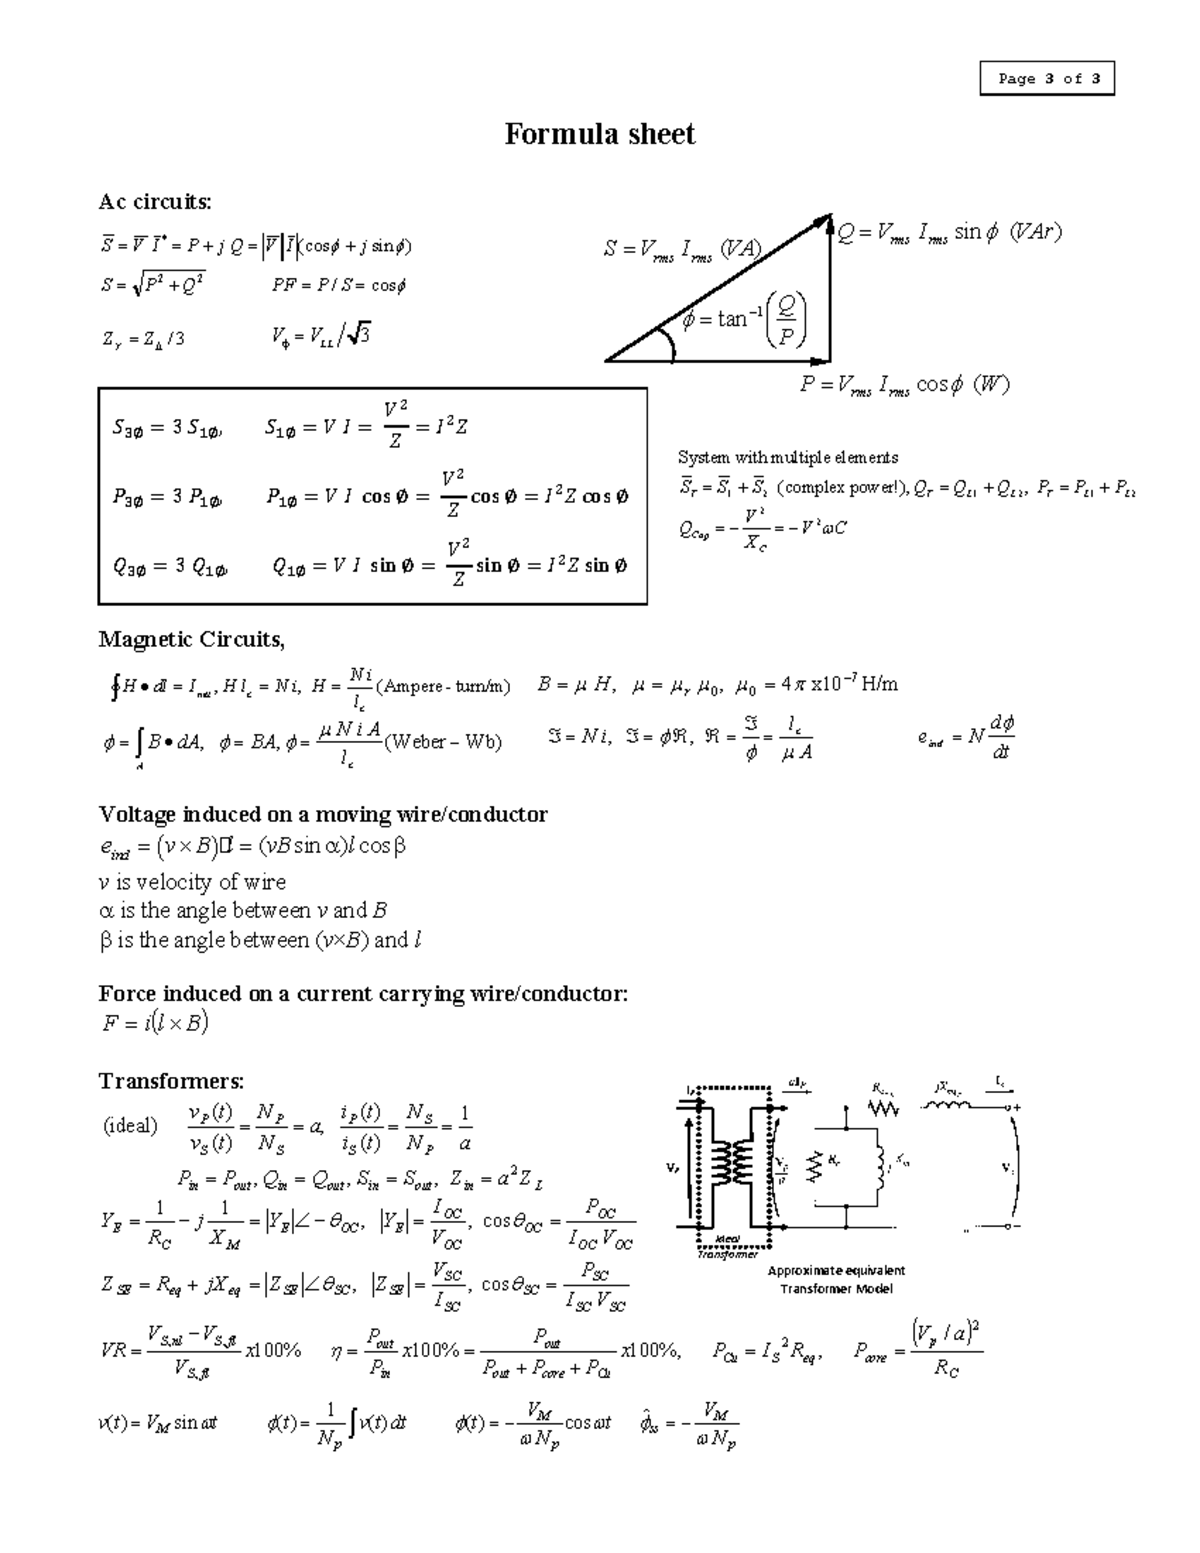 Page 3 of 3
Formula sheet
Ac circuits:
S̅ = V̅ I̅* = P + j Q = |V̅||I̅|(cosϕ + j sinϕ)
S = √(P² + Q²)    PF = P / S = cosϕ
Z_Y = Z_Δ / 3    V_ϕ = V_LL / √3
S = V_rms I_rms (VA)
Q = V_rms I_rms sin ϕ (VAr)
ϕ = tan⁻¹(Q/P)
P = V_rms I_rms cos ϕ (W)
S_3∅ = 3 S_1∅,    S_1∅ = V I = V²/Z = I²Z
P_3∅ = 3 P_1∅,    P_1∅ = V I cos ∅ = V²/Z cos ∅ = I²Z cos ∅
Q_3∅ = 3 Q_1∅,    Q_1∅ = V I sin ∅ = V²/Z sin ∅ = I²Z sin ∅
System with multiple elements
S̅_T = S̅_1 + S̅_2 (complex power!), Q_T = Q_L1 + Q_L2, P_T = P_L1 + P_L2
Q_Cap = − V²/X_C = − V²ωC
Magnetic Circuits,
∮H • dl = I_net, H l_c = Ni, H = Ni/l_c (Ampere - turn/m)    B = μ H, μ = μ_r μ_0, μ_0 = 4π x10⁻⁷ H/m
ϕ = ∫_A B • dA, ϕ = BA, ϕ = μ N i A/l_c (Weber – Wb)    ℑ = Ni, ℑ = ϕℜ, ℜ = ℑ/ϕ = l_c/μ A    e_ind = N dϕ/dt
Voltage induced on a moving wire/conductor
e_ind = (v × B)□l = (vB sin α)l cos β
v is velocity of wire
α is the angle between v and B
β is the angle between (v×B) and l
Force induced on a current carrying wire/conductor:
F = i(l × B)
Transformers:
(ideal)    v_P(t)/v_S(t) = N_P/N_S = a,    i_P(t)/i_S(t) = N_S/N_P = 1/a
P_in = P_out, Q_in = Q_out, S_in = S_out, Z_in = a²Z_L
Y_E = 1/R_C − j 1/X_M = |Y_E|∠ − θ_OC, |Y_E| = I_OC/V_OC, cosθ_OC = P_OC/I_OC V_OC
Z_SE = R_eq + jX_eq = |Z_SE|∠θ_SC, |Z_SE| = V_SC/I_SC, cosθ_SC = P_SC/I_SC V_SC
I_P
aI_P
V_P
Ideal
Transformer
Approximate equivalent
Transformer Model
VR = (V_S,nl − V_S,fl)/V_S,fl x100%    η = P_out/P_in x100% = P_out/(P_out + P_core + P_Cu) x100%,    P_Cu = I_S² R_eq,    P_core = (V_p / a)²/R_C
v(t) = V_M sin ωt    ϕ(t) = 1/N_p ∫v(t) dt    ϕ(t) = − V_M/ω N_p cos ωt    ϕ̂_ss = − V_M/ω N_p